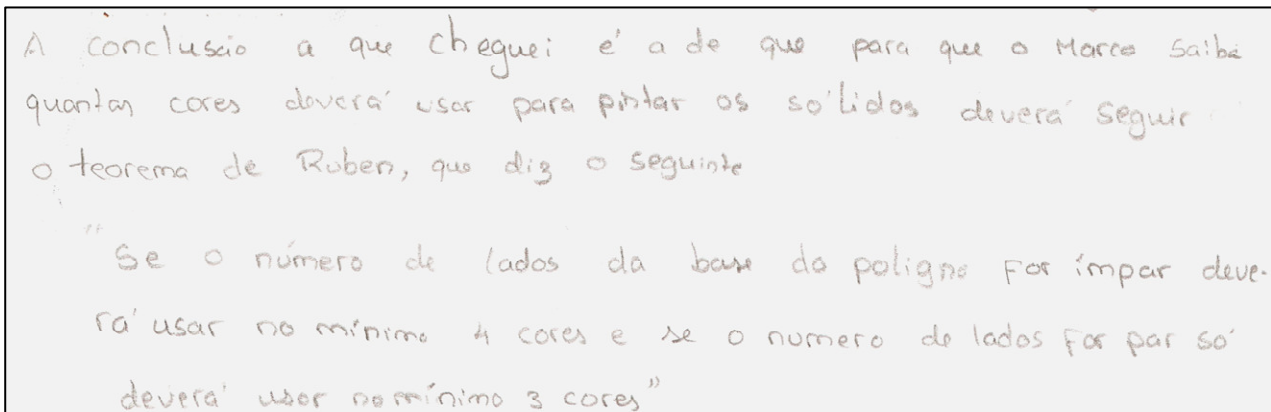 A conclusão a que cheguei é a de que para que o Marco saiba
quantas cores deverá usar para pintar os sólidos deverá seguir
o teorema de Ruben, que diz o seguinte
"Se o número de lados da base do poligno for ímpar deve-
rá usar no mínimo 4 cores e se o numero de lados for par só
deverá usar no mínimo 3 cores"